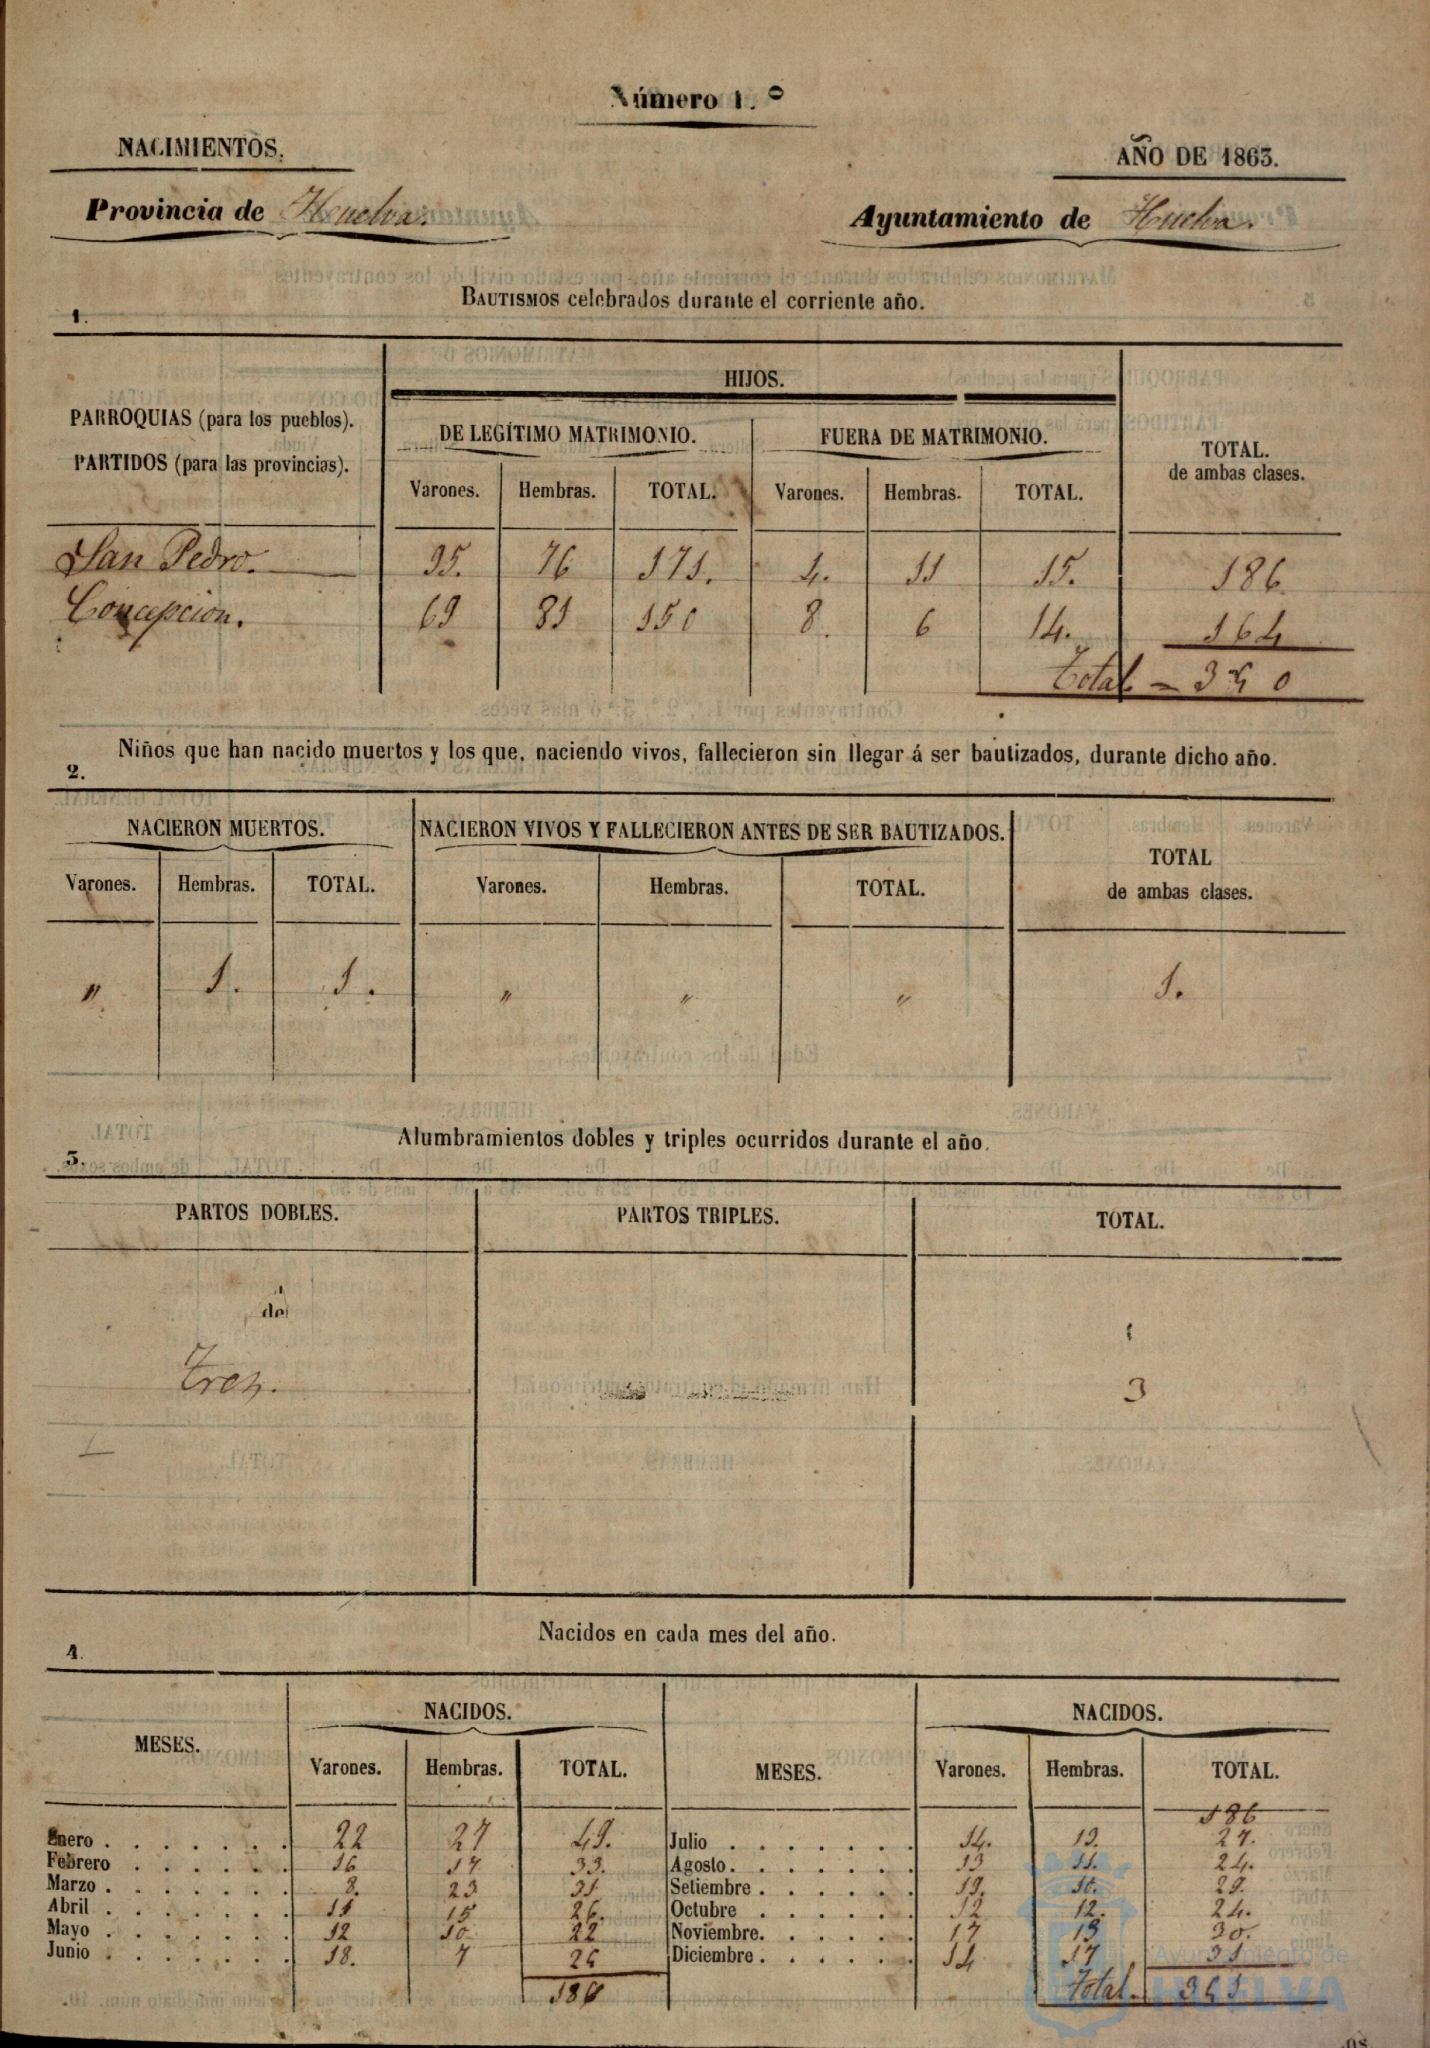 Número 1.º
NACIMIENTOS.
AÑO DE 1863.
Provincia de Huelva.
Ayuntamiento de Huelva.
BAUTISMOS celebrados durante el corriente año.
1.
PARROQUIAS (para los pueblos).
PARTIDOS (para las provincias).
HIJOS.
DE LEGÍTIMO MATRIMONIO.
FUERA DE MATRIMONIO.
TOTAL.
de ambas clases.
Varones. Hembras. TOTAL. Varones. Hembras. TOTAL.
San Pedro. 95. 76 171. 4. 11 15. 186
Concepcion. 69 81 150 8. 6 14. 164
Total - 350
Niños que han nacido muertos y los que, naciendo vivos, fallecieron sin llegar á ser bautizados, durante dicho año.
2.
NACIERON MUERTOS.
NACIERON VIVOS Y FALLECIERON ANTES DE SER BAUTIZADOS.
TOTAL
de ambas clases.
Varones. Hembras. TOTAL. Varones. Hembras. TOTAL.
" 1. 1. " " " 1.
Alumbramientos dobles y triples ocurridos durante el año.
3.
PARTOS DOBLES. PARTOS TRIPLES. TOTAL.
de
Tres. 3
Nacidos en cada mes del año.
4.
MESES. NACIDOS. MESES. NACIDOS.
Varones. Hembras. TOTAL. Varones. Hembras. TOTAL.
186
Enero . . . . . . . 22 27 49. Julio . . . . . . . 14. 13. 27.
Febrero . . . . . . 16 17 33. Agosto. . . . . . . 13 11. 24.
Marzo . . . . . . . 8. 23 31 Setiembre . . . . . 19. 10. 29.
Abril . . . . . . . 11 15 26. Octubre . . . . . . 12 12. 24.
Mayo . . . . . . . 12 10 22 Noviembre. . . . . . 17 13 30.
Junio . . . . . . . 18. 7 25 Diciembre . . . . . 14 17 31
186 Total. 351
Ayuntamiento de
HUELVA